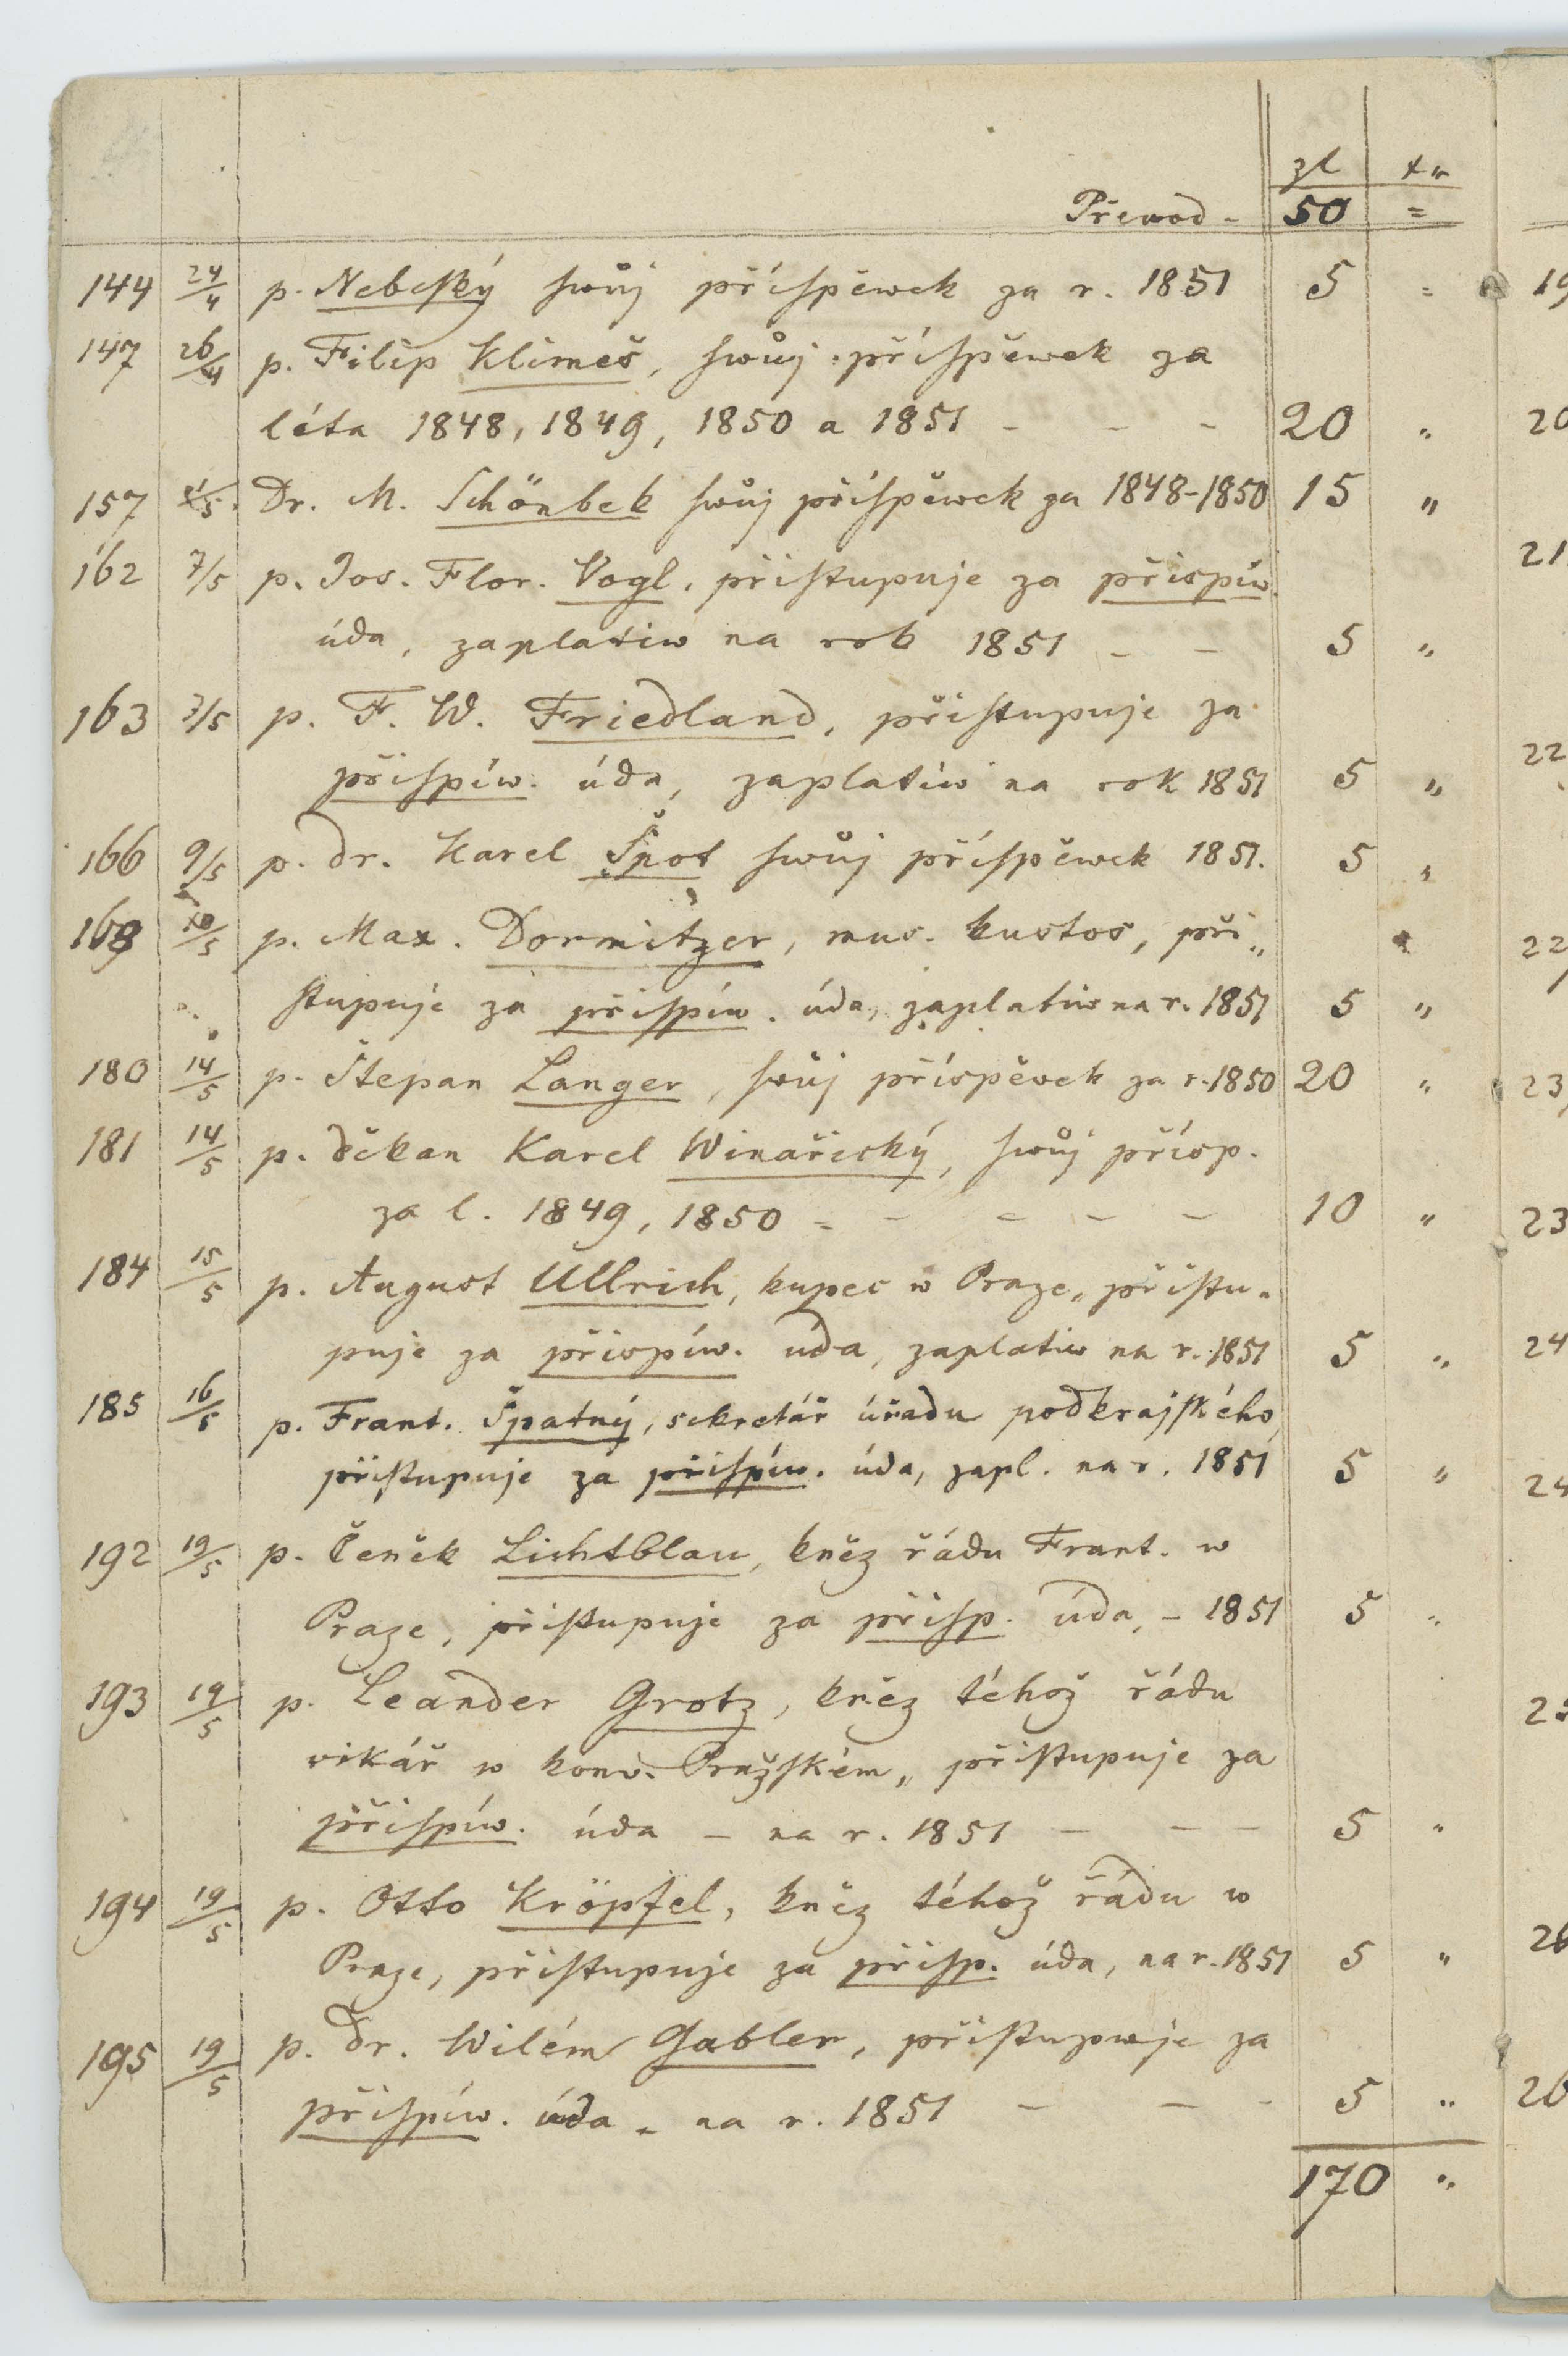 zl xr
Přewod - 50 =
144 24/4 p. Nebeský swůj příspěwek za r. 1851 5 =
147 26/4 p. Filip Klimeš, swůj příspěwek za
léta 1848, 1849, 1850 a 1851 - - - 20 "
157 /5. Dr. M. Schönbek swůj příspěwek za 1848-1850 15 "
162 7/5 p. Jos. Flor. Vogl, přistupuje za přispíw.
úda, zaplatiw na rok 1851 - - 5 "
163 7/5 p. F. W. Friedland, přistupuje za
přispíw. úda, zaplatiw na rok 1851 5 "
166 9/5 p. dr. Karel Špot swůj příspěwek 1851. 5 "
169 10/5 p. Max. Dormitzer, mus. kustos, při„
stupuje za přispíw. úda, zaplatiw na r. 1851 5 "
180 14/5 p. Štepan Langer, swůj příspěwek za r. 1850 20 "
181 14/5 p. děkan Karel Winařický, swůj přísp.
za l. 1849, 1850 = - - - - 10 "
184 15/5 p. August Ullrich, kupec w Praze, přistu-
puje za přispíw. úda, zaplatiw na r. 1851 5 "
185 16/5 p. Frant. Špatný, sekretář úřadu podkrajského,
přistupuje za přispíw. úda, zapl. na r. 1851 5 "
192 19/5 p. Čeněk Lichtblau, kněz řádu Frant. w
Praze, přistupuje za přisp. úda, - 1851 5 "
193 19/5 p. Leander Grotz, kněz téhož řádu
vikář w konv. Pražském, přistupuje za
přispíw. úda - na r. 1851 - - - 5 "
194 19/5 p. Otto Kröpfel, kněz téhož řádu w
Praze, přistupuje za přisp. úda, na r. 1851 5 "
195 19/5 p. Dr. Wilém Gabler, přistupuje za
přispíw. úda - na r. 1851 - - - 5 "
170 "